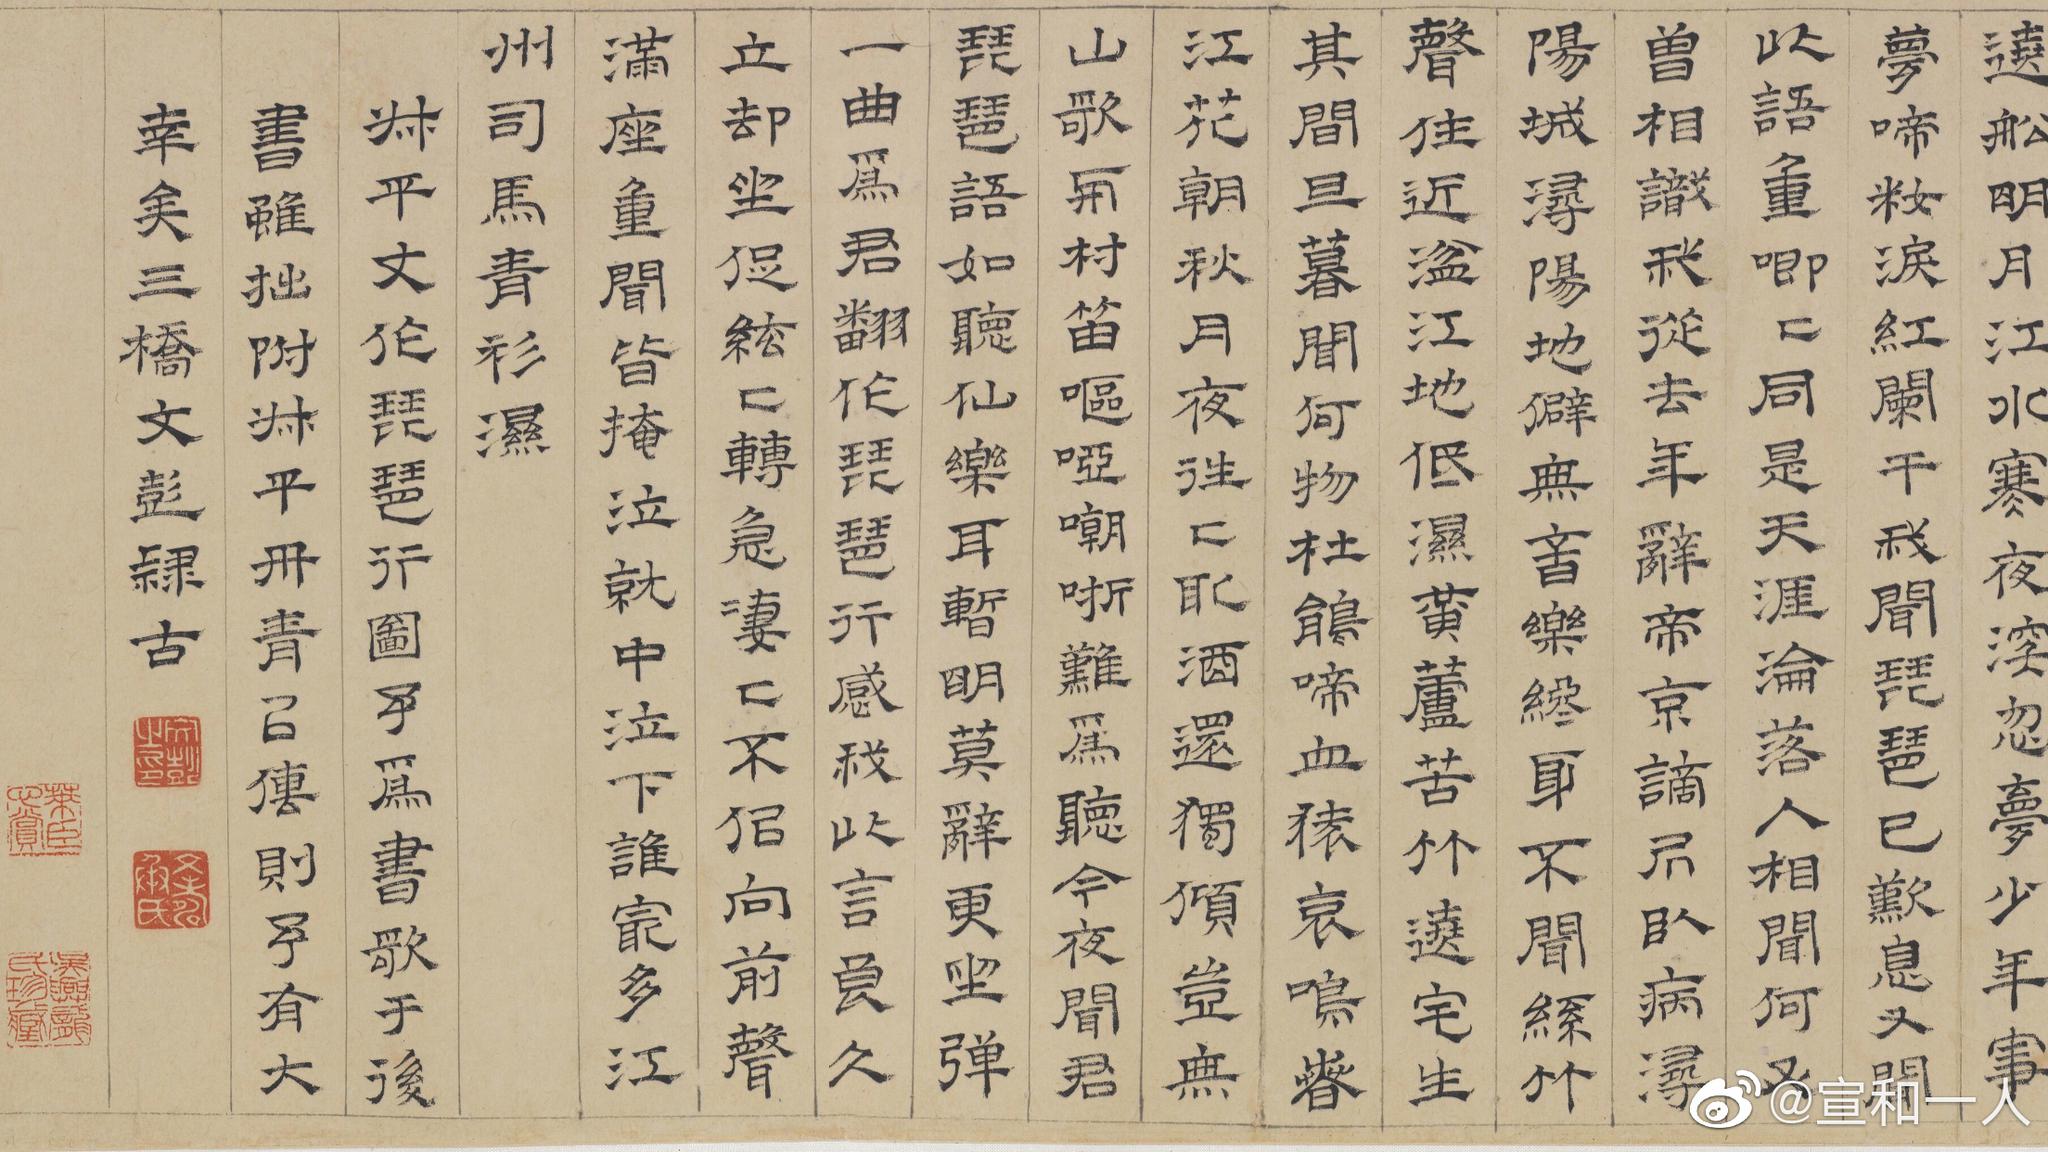 遶船明月江水寒夜深忽夢少年事
夢啼粧淚紅闌干我聞琵琶已歎息又聞
此語重唧〻同是天涯淪落人相聞何必
曾相識我從去年辭帝京謫居臥病潯
陽城潯陽地僻無音樂終歲不聞絲竹
聲住近湓江地低濕黄蘆苦竹遶宅生
其間旦暮聞何物杜鵑啼血猿哀鳴春
江花朝秋月夜往〻取酒還獨傾豈無
山歌與村笛嘔啞嘲哳難爲聽今夜聞君
琵琶語如聽仙樂耳暫明莫辭更坐弹
一曲爲君翻作琵琶行感我此言良久
立却坐促絃〻轉急凄〻不似向前聲
滿座重聞皆掩泣就中泣下誰最多江
州司馬青衫濕
叔平丈作琵琶行圖予爲書歌于後
書雖拙附叔平丹青以傳則予有大
幸矣三橋文彭隸古
文彭之印
@宣和一人